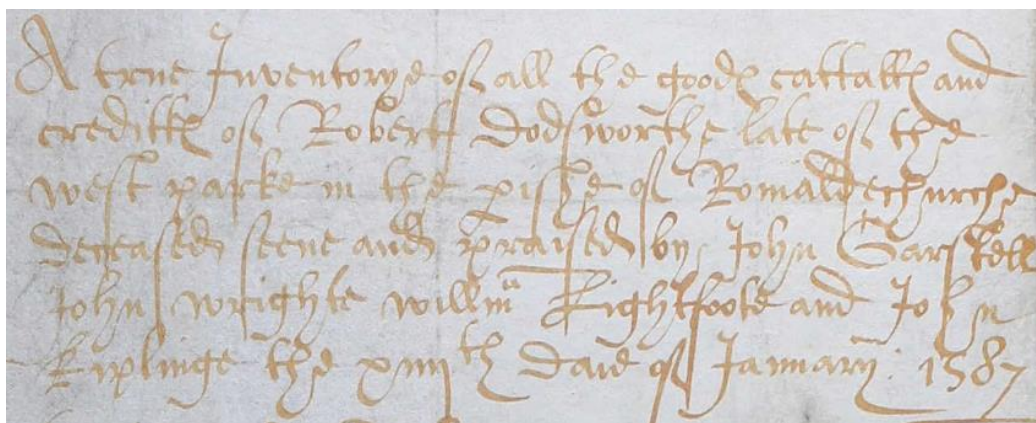 A true Inventorye of all the goods cattalls and
creditts of Robert Dodsworthe late of the
west parke in the pishe of Romaldechurche
deceased seene and praised by John Garstell
John wrighte willm Lightfoote and John
Kiplinge the xiiiith daie of Januarij 1587